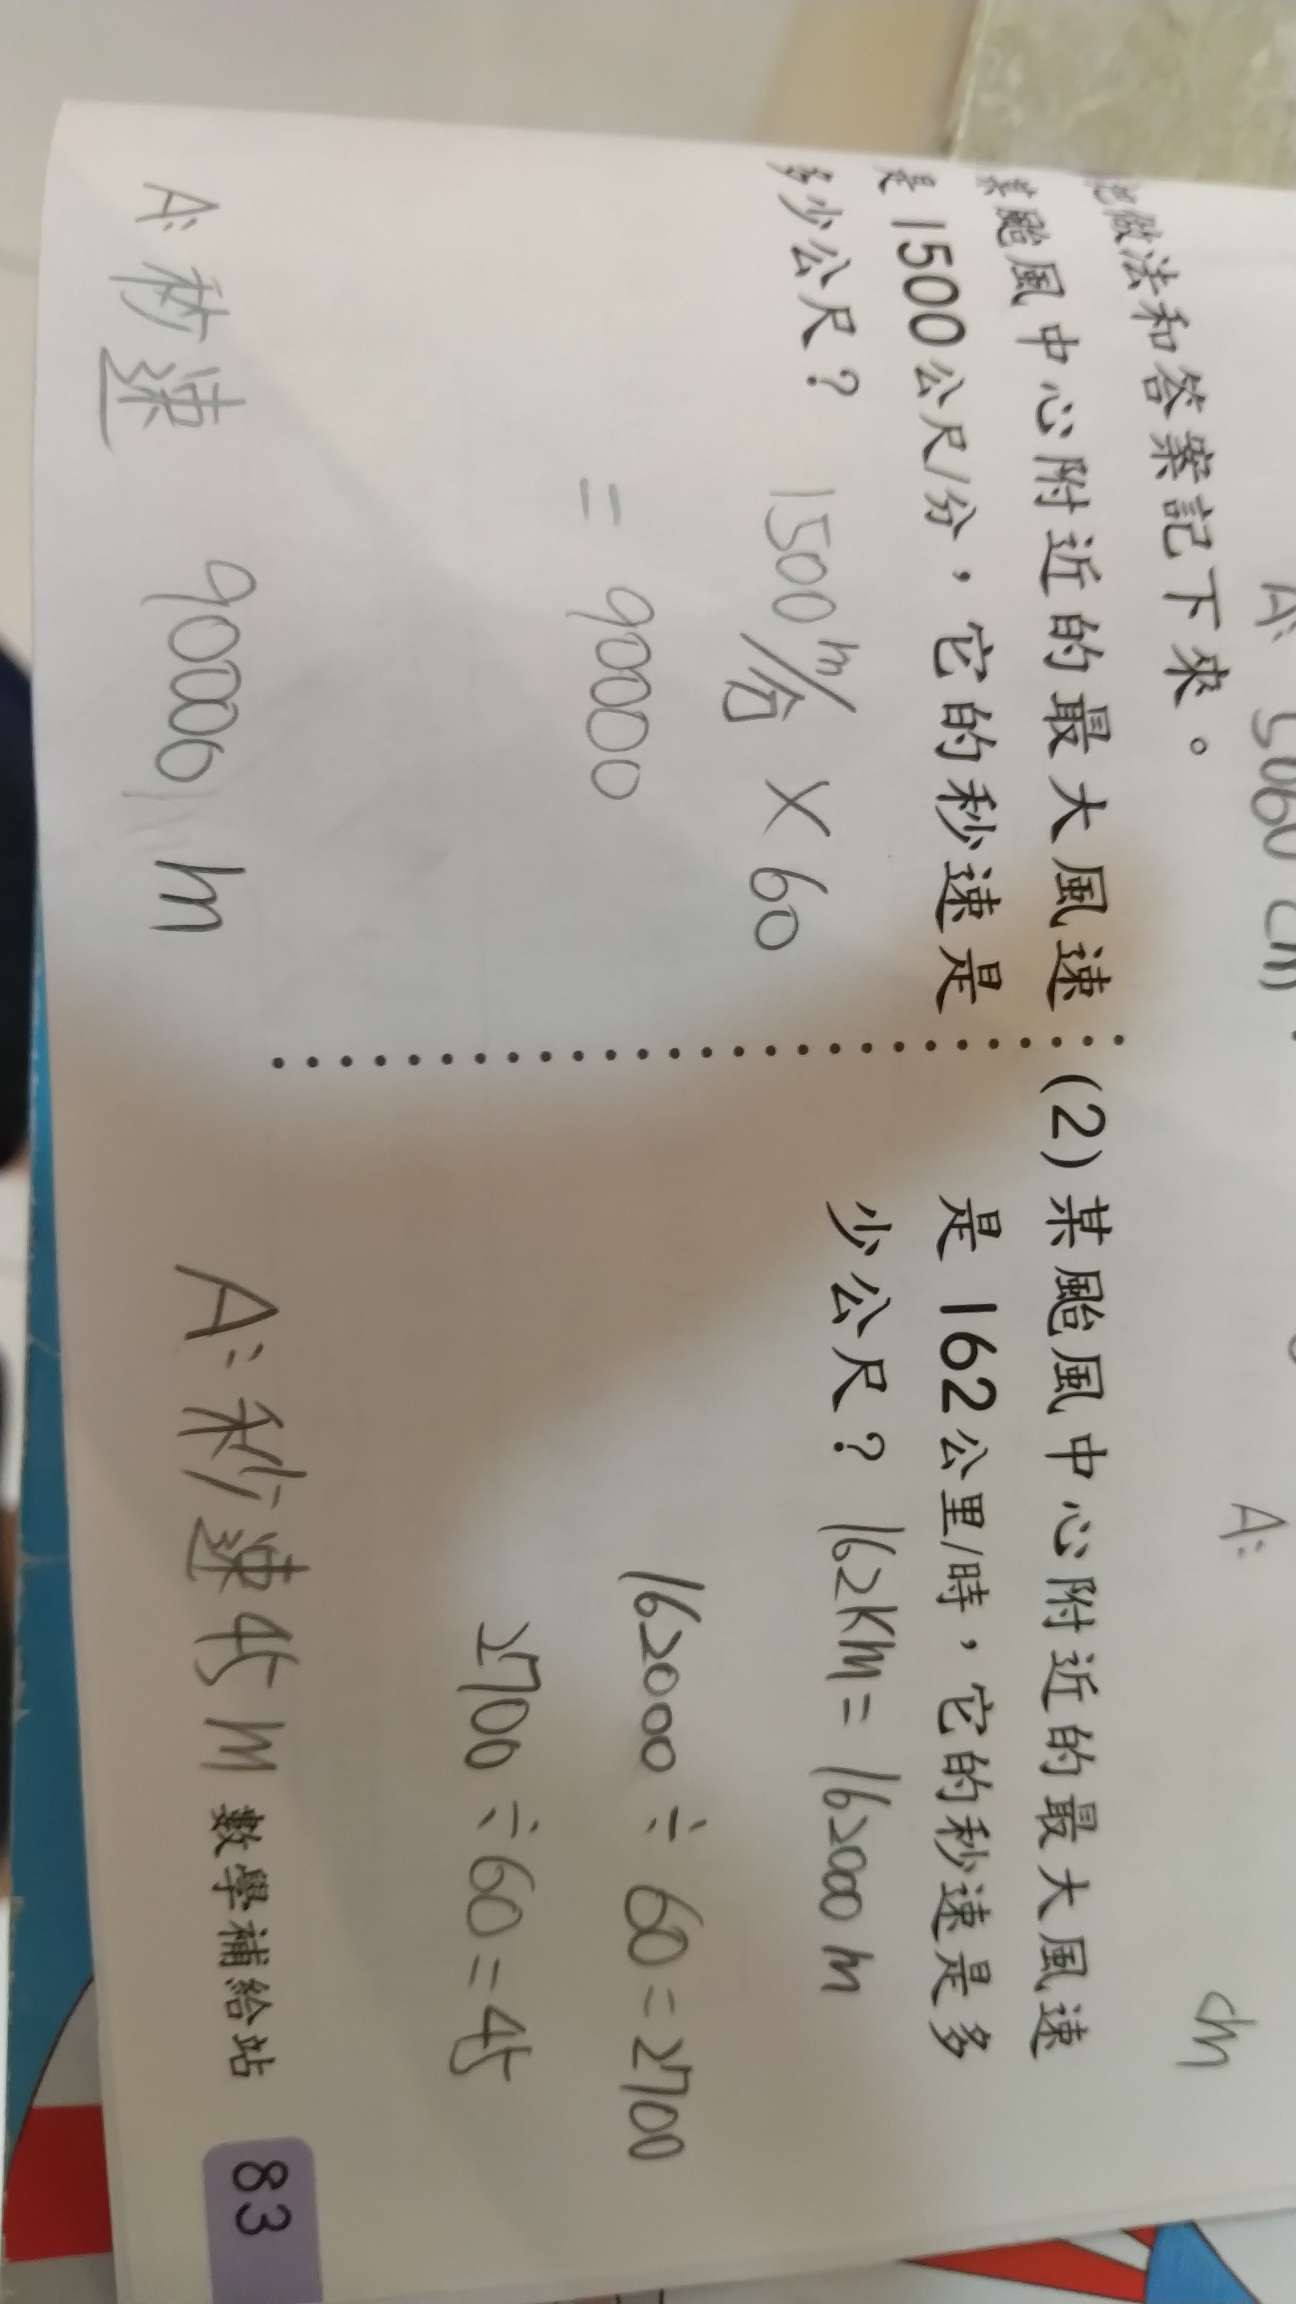 A: 5060 cm
A:
cm
把做法和答案記下來。
某颱風中心附近的最大風速
是1500公尺/分，它的秒速是
多少公尺？
1500m/分 × 60
= 90000
A: 秒速 90000 m
(2) 某颱風中心附近的最大風速
是162公里/時，它的秒速是多
少公尺？ 162KM = 162000 m
162000 ÷ 60 = 2700
2700 ÷ 60 = 45
A: 秒速45 m
數學補給站 83